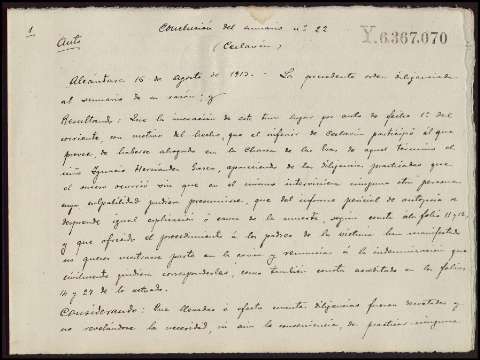 1
Conclusión del sumario nº 22
(Ceclavín)
Y.6.367.070
Auto
Alcántara 16 de Agosto de 1913. - La precedente orden diligenciada
al sumario de su razón; y
Resultando: Que la incoación de este tuvo lugar por auto de fecha 1º del
corriente, con motivo del hecho, que el inferior de Ceclavín participó al que
provee, de haberse ahogado en la Charca de las Eras de aquel término el
niño Ignacio Hernández Garco, apareciendo de las diligencias practicadas que
el suceso ocurrió sin que en el mismo interviniera ninguna otra persona
cuya culpabilidad pudiera presumirse, que del informe pericial de autopsia se
desprende igual explicación ó causa de la muerte, según consta al folio 11 y 12,
y que ofrecido el procedimiento á los padres de la víctima han manifestado
no querer mostrarse parte en la causa y renuncian á la indemnización que
civilmente pudiera corresponderles, como también consta acreditado en los folios
14 y 27 de lo actuado.
Considerando: Que llevadas á efecto cuantas diligencias fueron decretadas y
no revelándose la necesidad, ni aun la conveniencia, de practicar ninguna